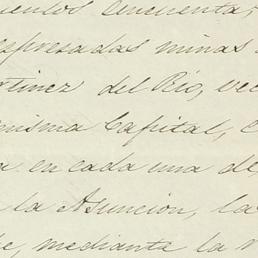 cincuenta,
espresadas minas
del Rio, vec
misma Capital, C
a en cada una de
la Asuncion, la
mediante la v